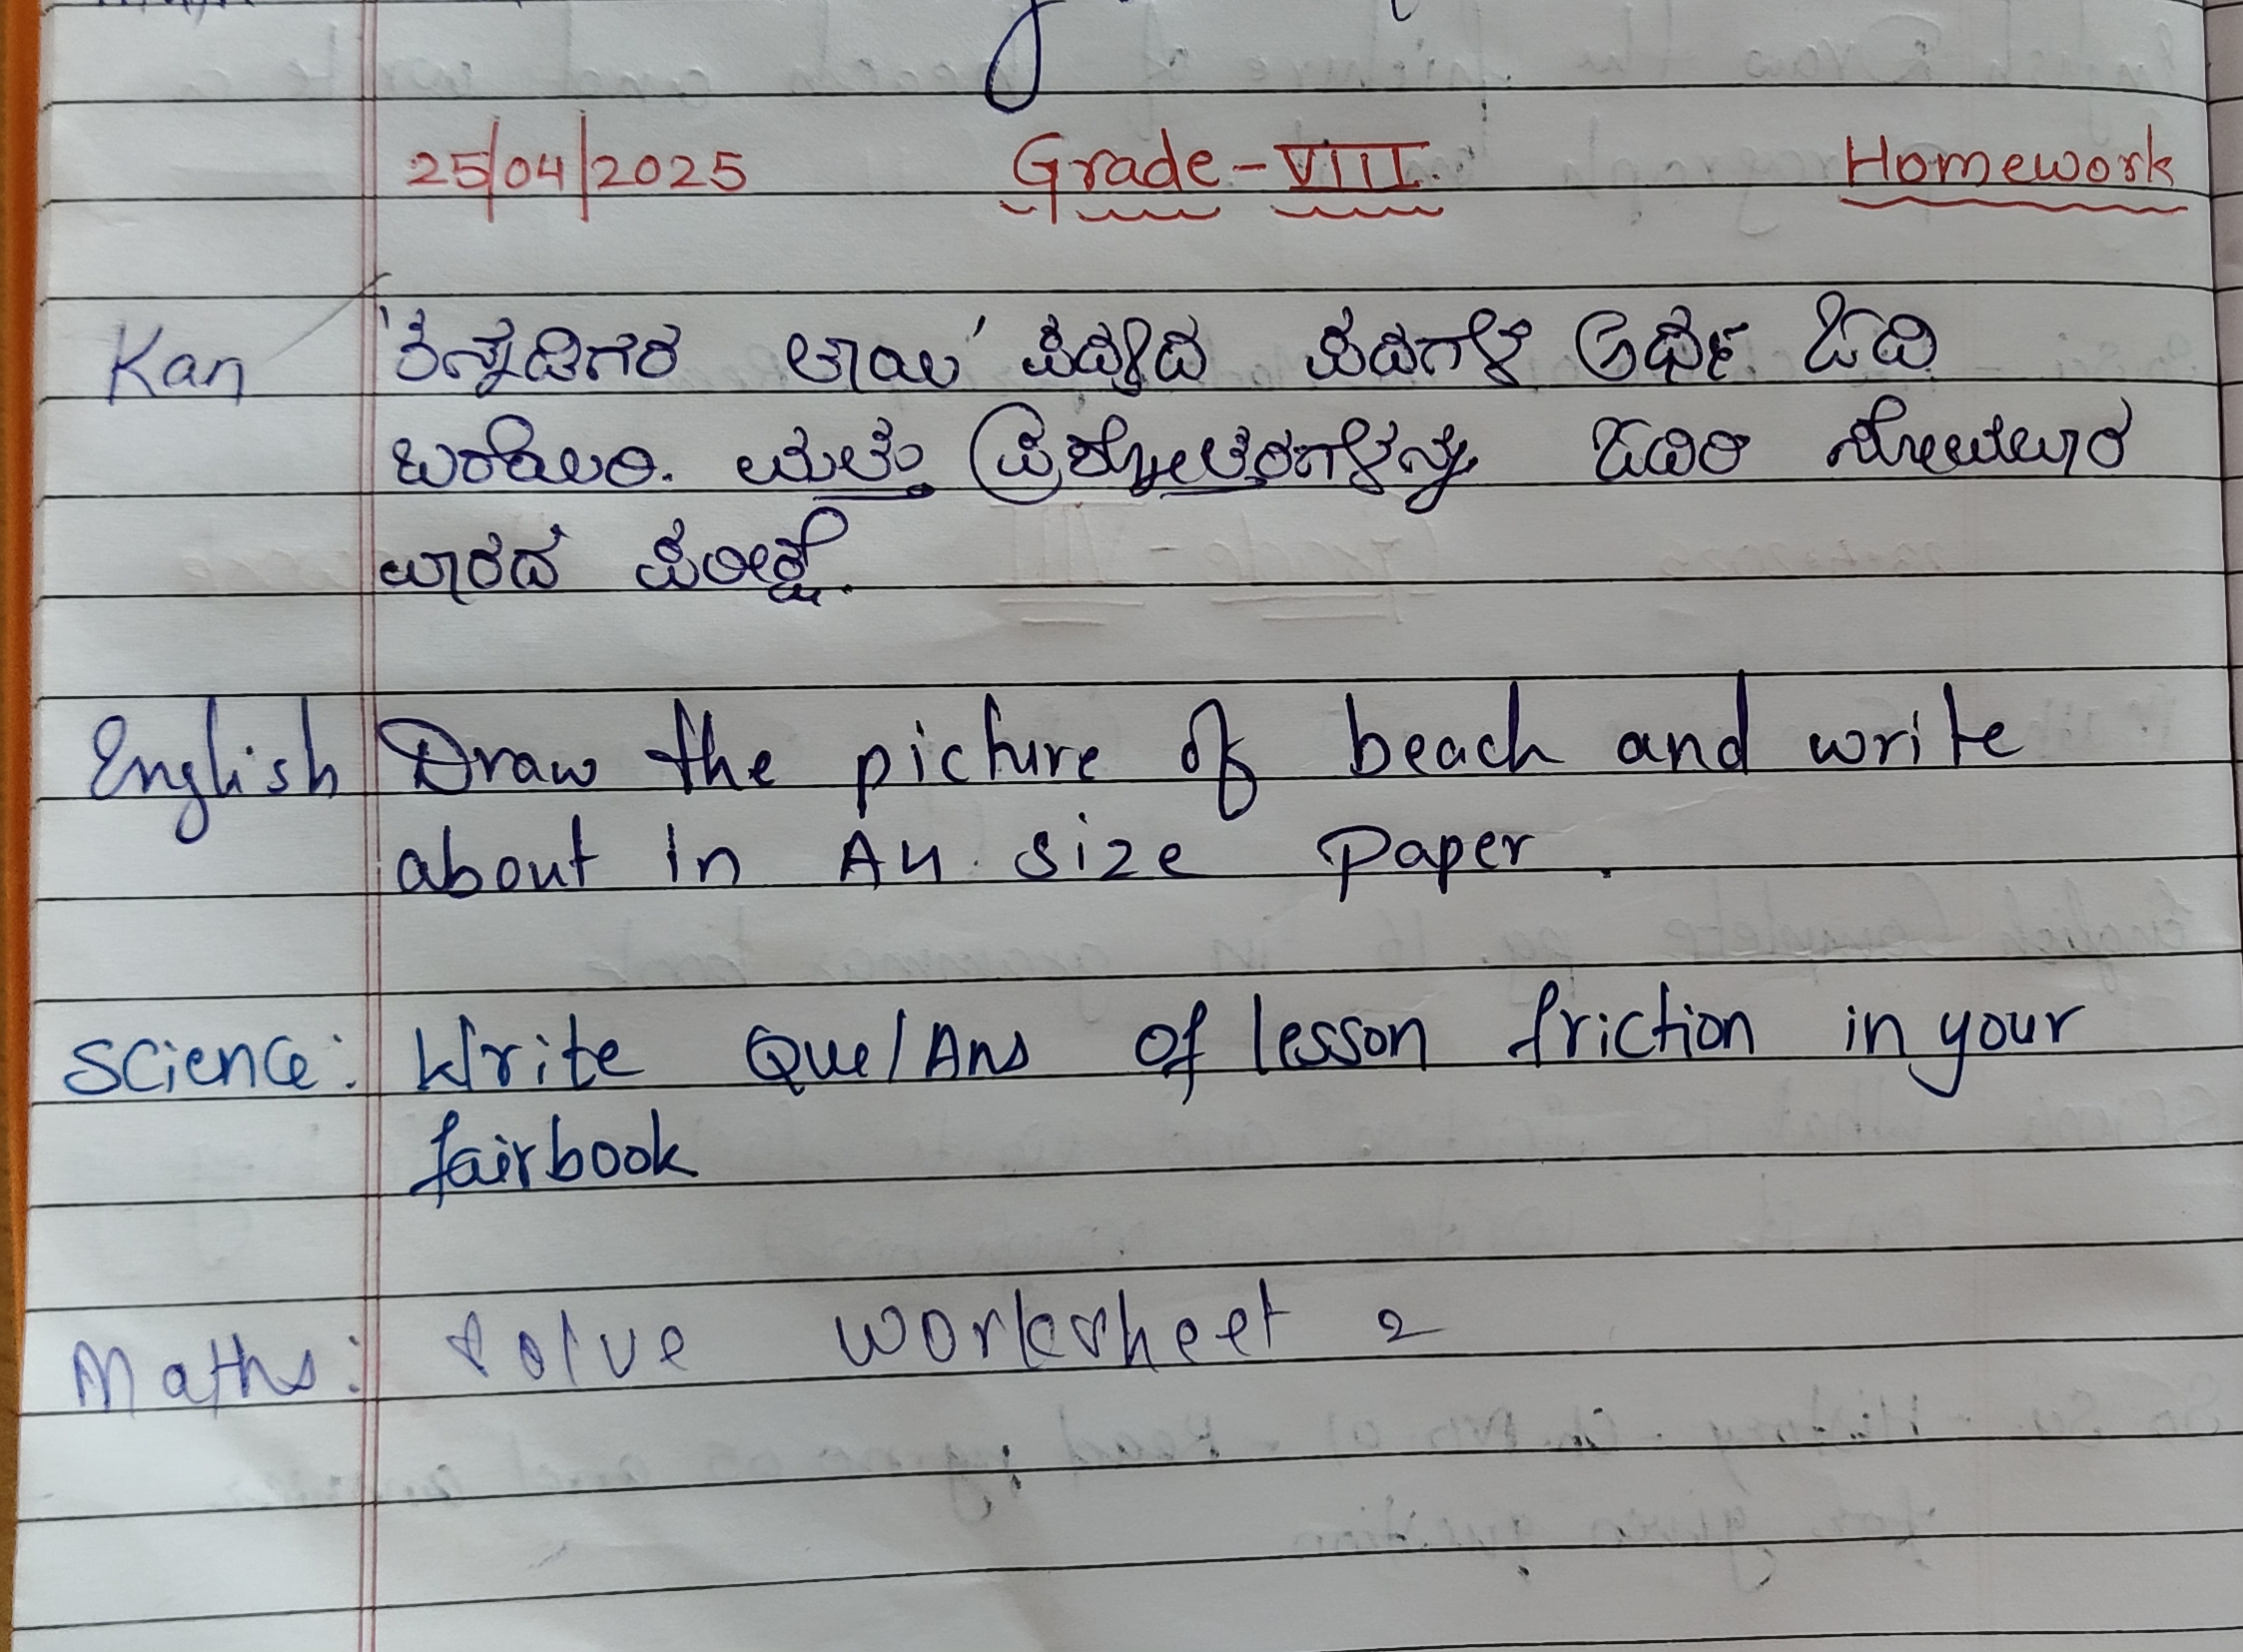 25/04/2025 Grade-VIII. Homework
Kan 'ಕನ್ನಡಿಗರ ತಾಯಿ' ಪದ್ಯದ ಪದಗಳ ಅರ್ಥ ಓದಿ
ಬರೆಯಿರಿ. ಮತ್ತು ಪ್ರಶ್ನೋತ್ತರಗಳನ್ನು ಓದಿರಿ ಸೋಮವಾರ
ವಾರದ ಪರೀಕ್ಷೆ.
English Draw the picture of beach and write
about in A4 size paper.
Science: Write Que/Ans of lesson friction in your
fairbook
Maths: Solve worksheet 2